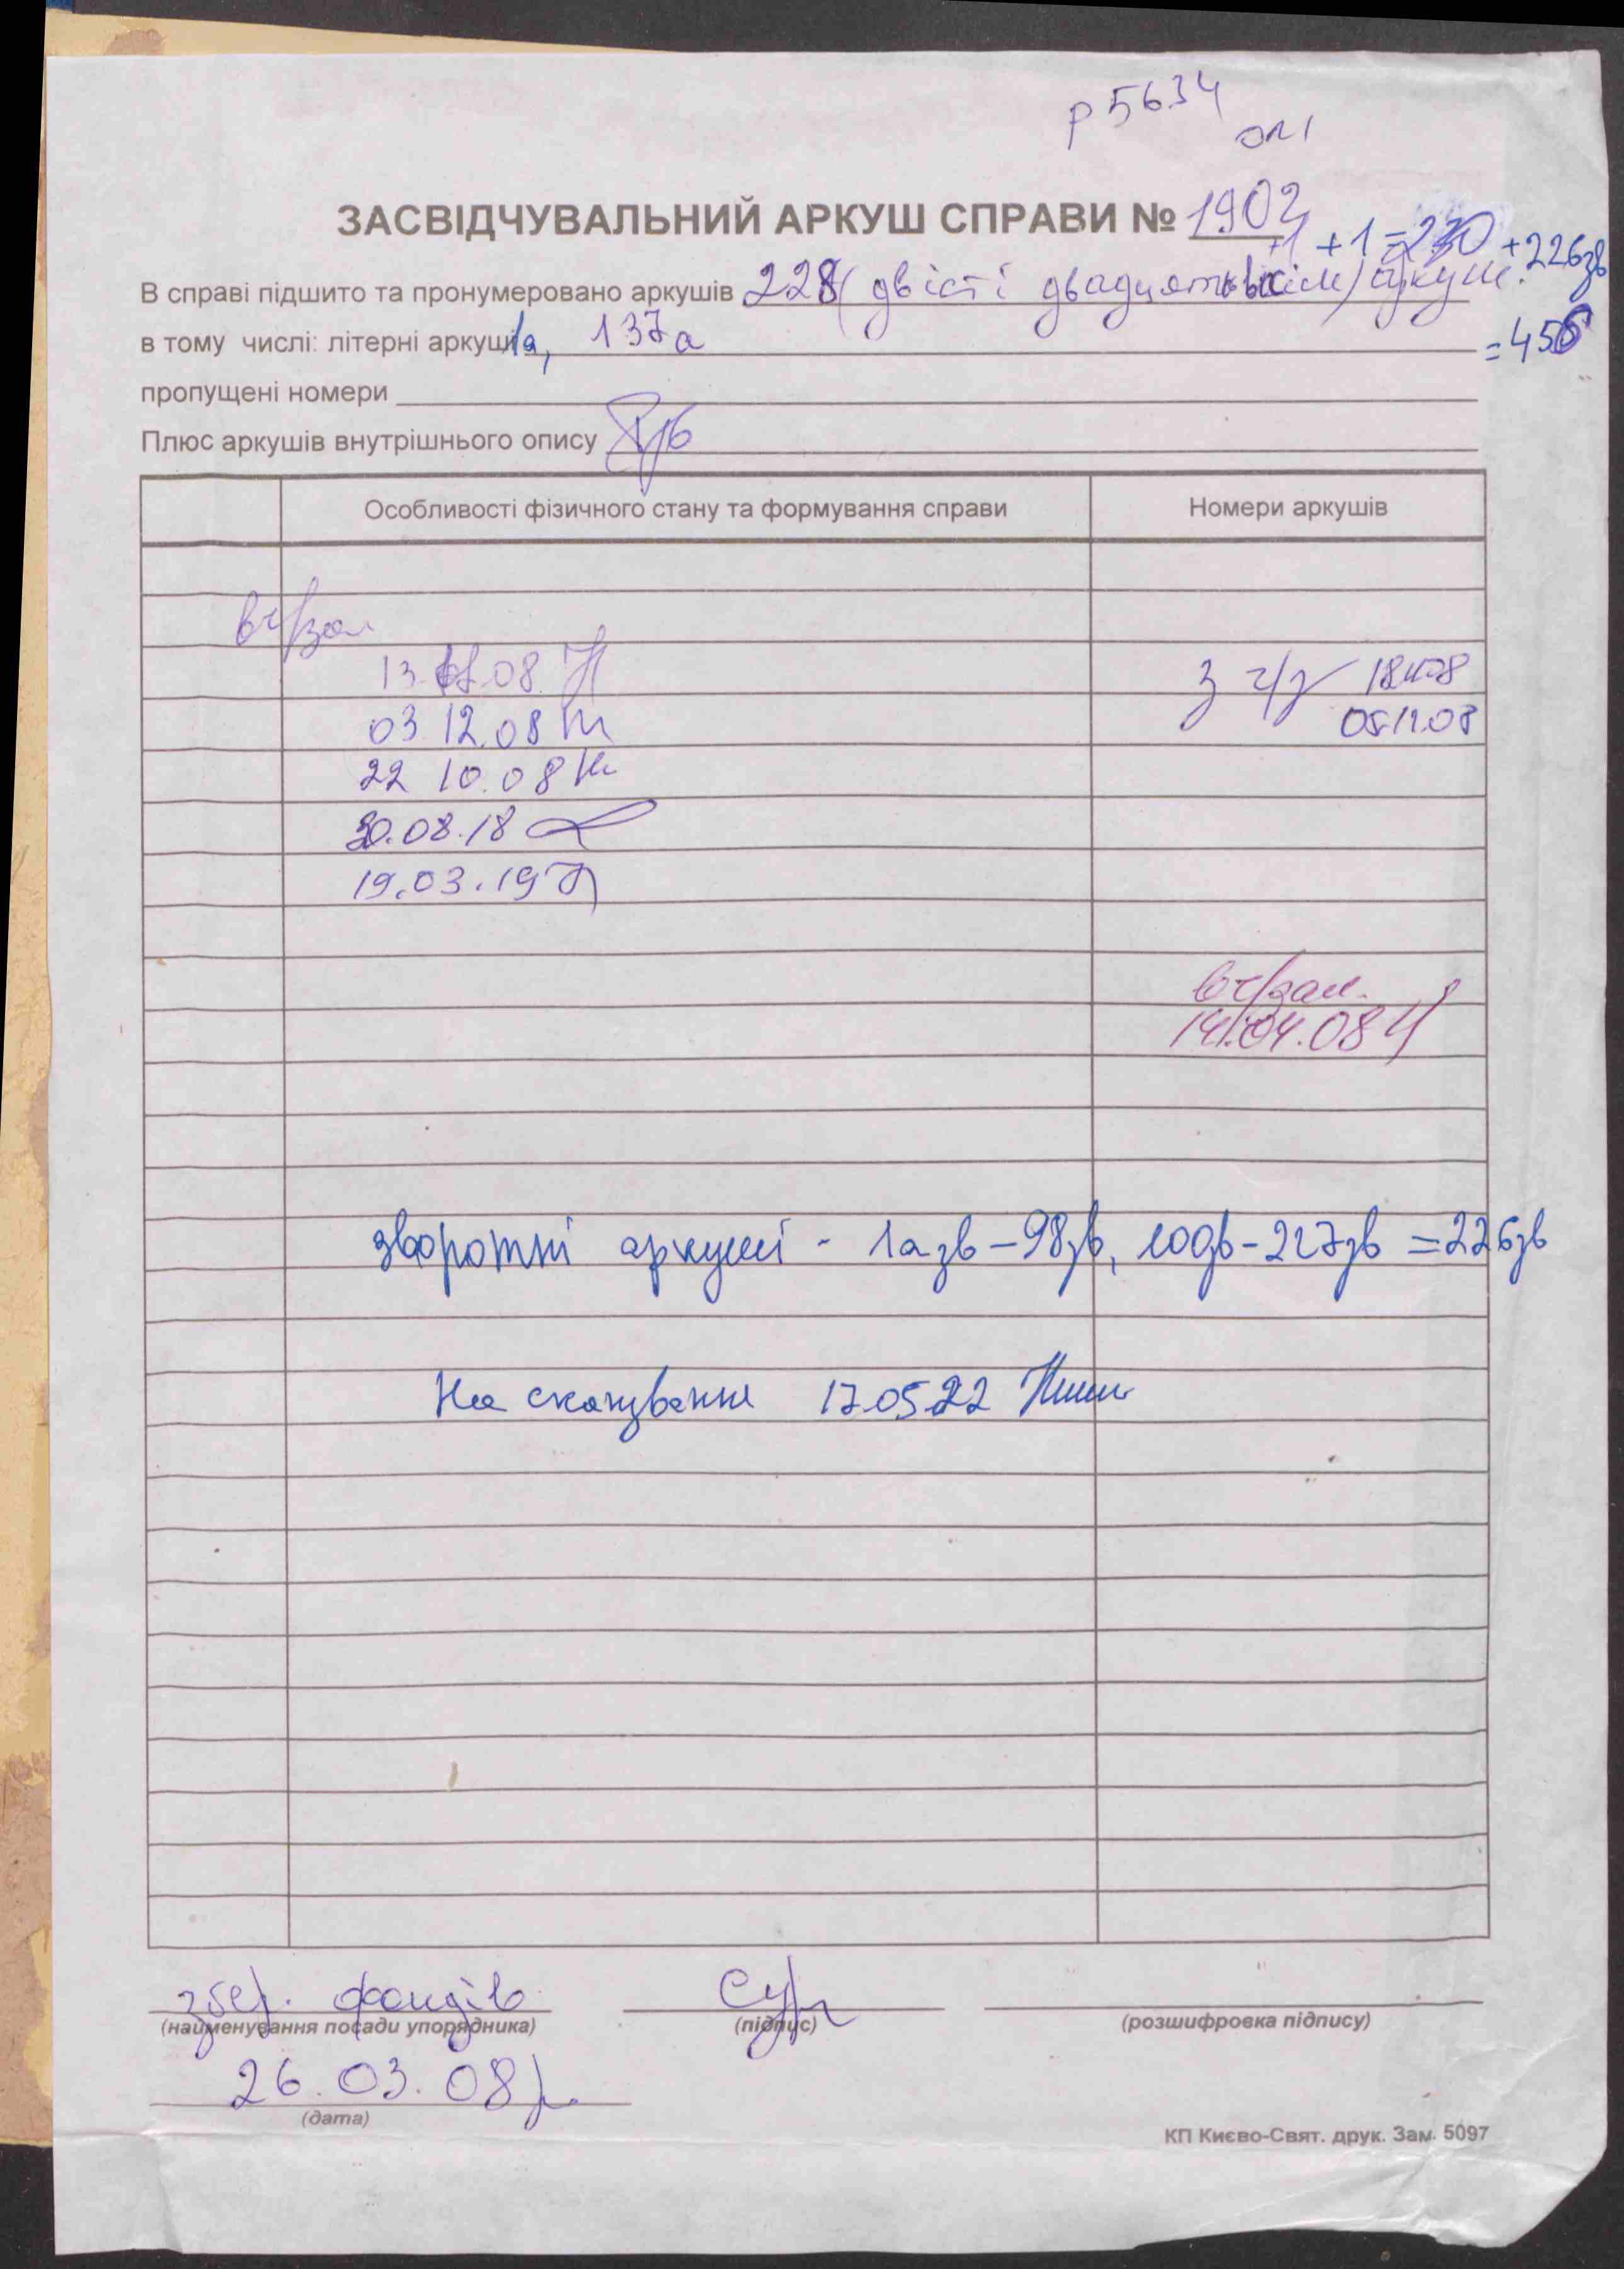 р 5634
оп 1
ЗАСВІДЧУВАЛЬНИЙ АРКУШ СПРАВИ № 1902
+1 +1 = 230 + 226зв
В справі підшито та пронумеровано аркушів 228 (двісті двадцять вісім) аркуш.
в тому числі: літерні аркуші 1а, 137а
= 456
пропущені номери
Плюс аркушів внутрішнього опису
Особливості фізичного стану та формування справи
Номери аркушів
в ч/зал
08
з ч/з
03 12.08
22 10.08
30.08.18
19.03.19
в ч/зал.
14.04.08
зворотні аркуші - 1а зв – 98зв, 100зв – 227зв = 226зв
На сканування 17.05.22
збер. фондів
(найменування посади упорядника)
(підпис)
(розшифровка підпису)
26.03.08р.
(дата)
КП Києво-Свят. друк. Зам. 5097